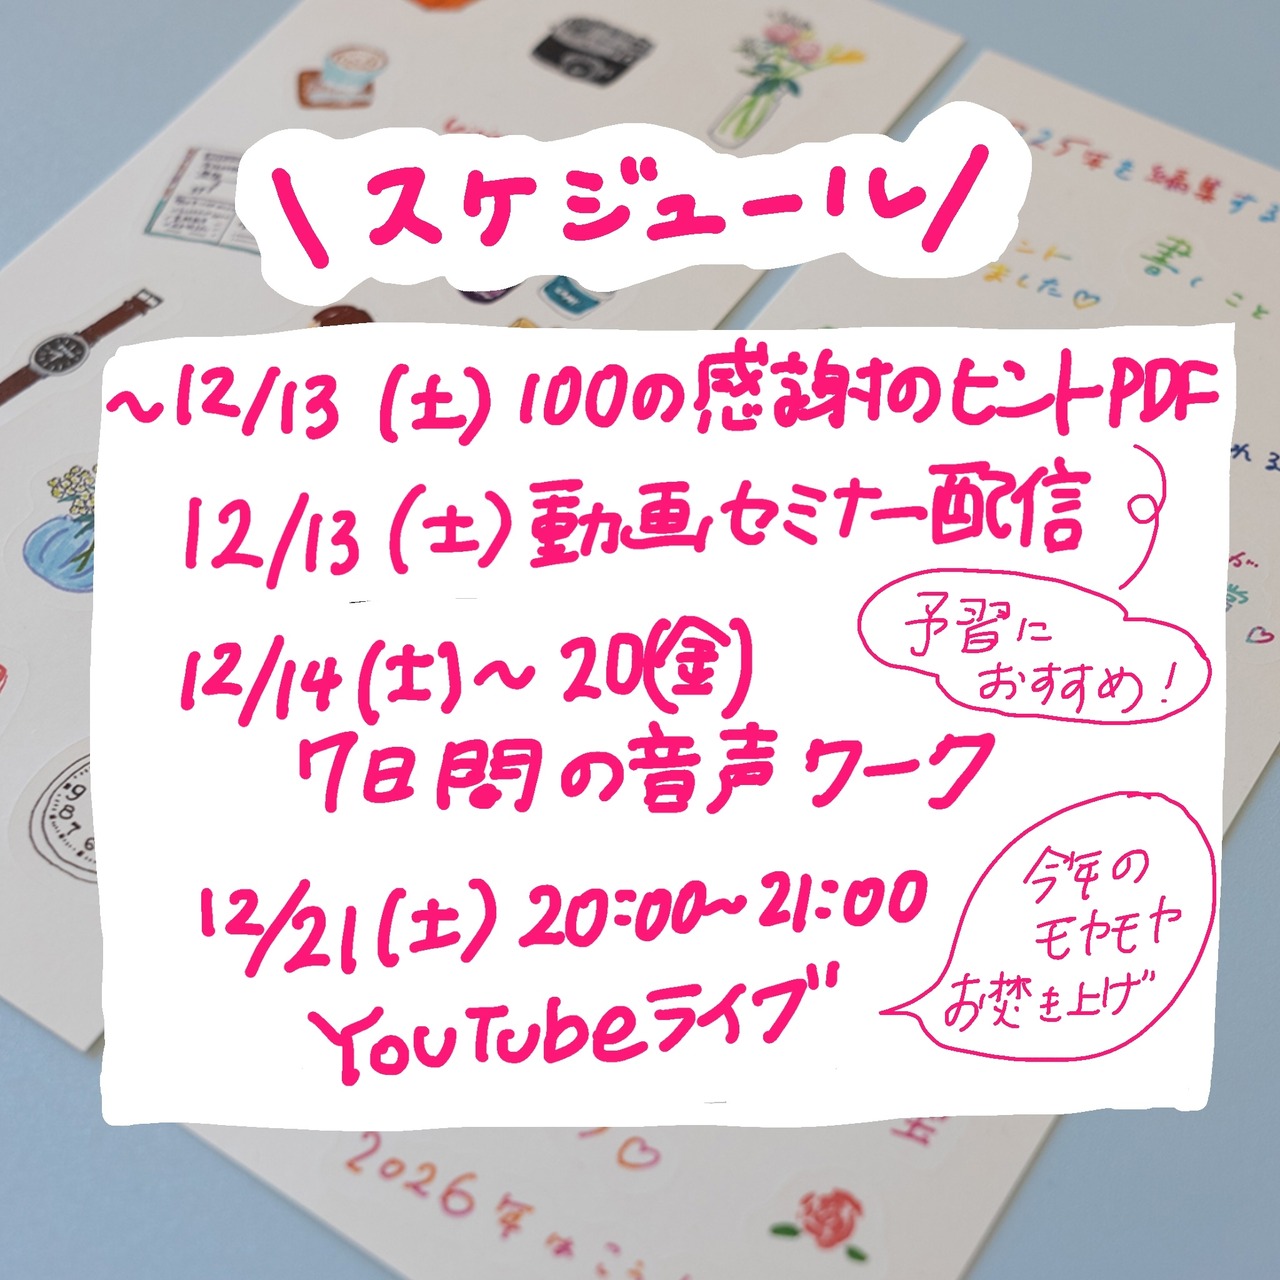 \スケジュール/
~12/13 (土) 100の感謝のヒントPDF
12/13 (土) 動画セミナー配信
予習に
おすすめ!
12/14 (土) ~ 20(金)
7日間の音声ワーク
12/21 (土) 20:00~21:00
YouTubeライブ
今年の
モヤモヤ
お焚き上げ
25年を編集する
書くこと
ました♡
2026年は